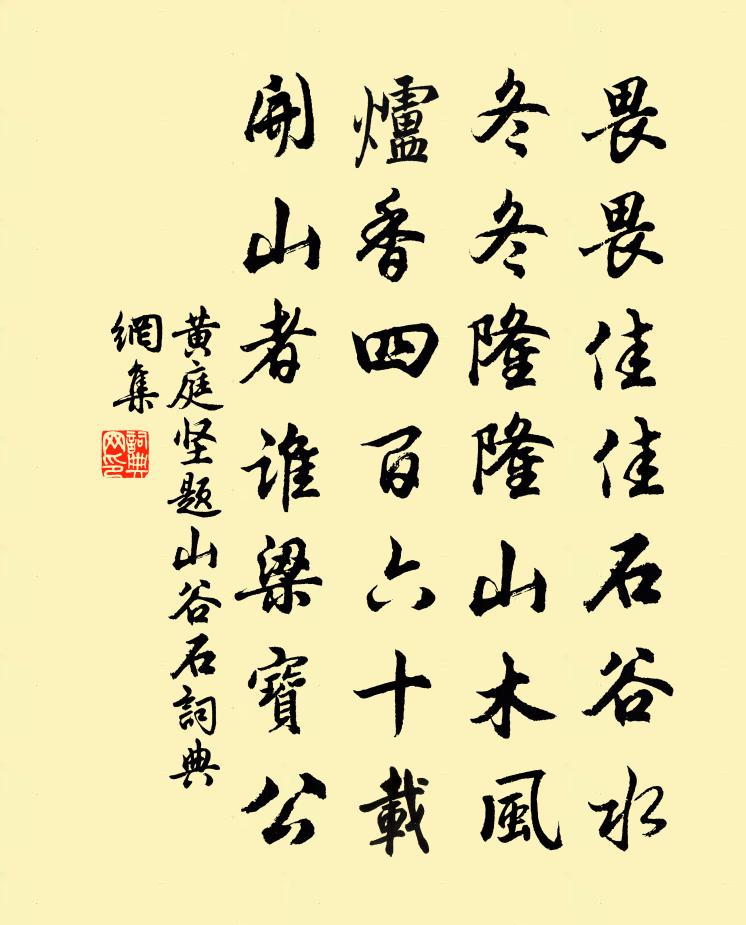 畏畏佳佳石谷水
冬冬隆隆山木風
爐香四百六十載
開山者誰梁寶公
黄庭坚题山谷石詞典
網集
詞典
网印